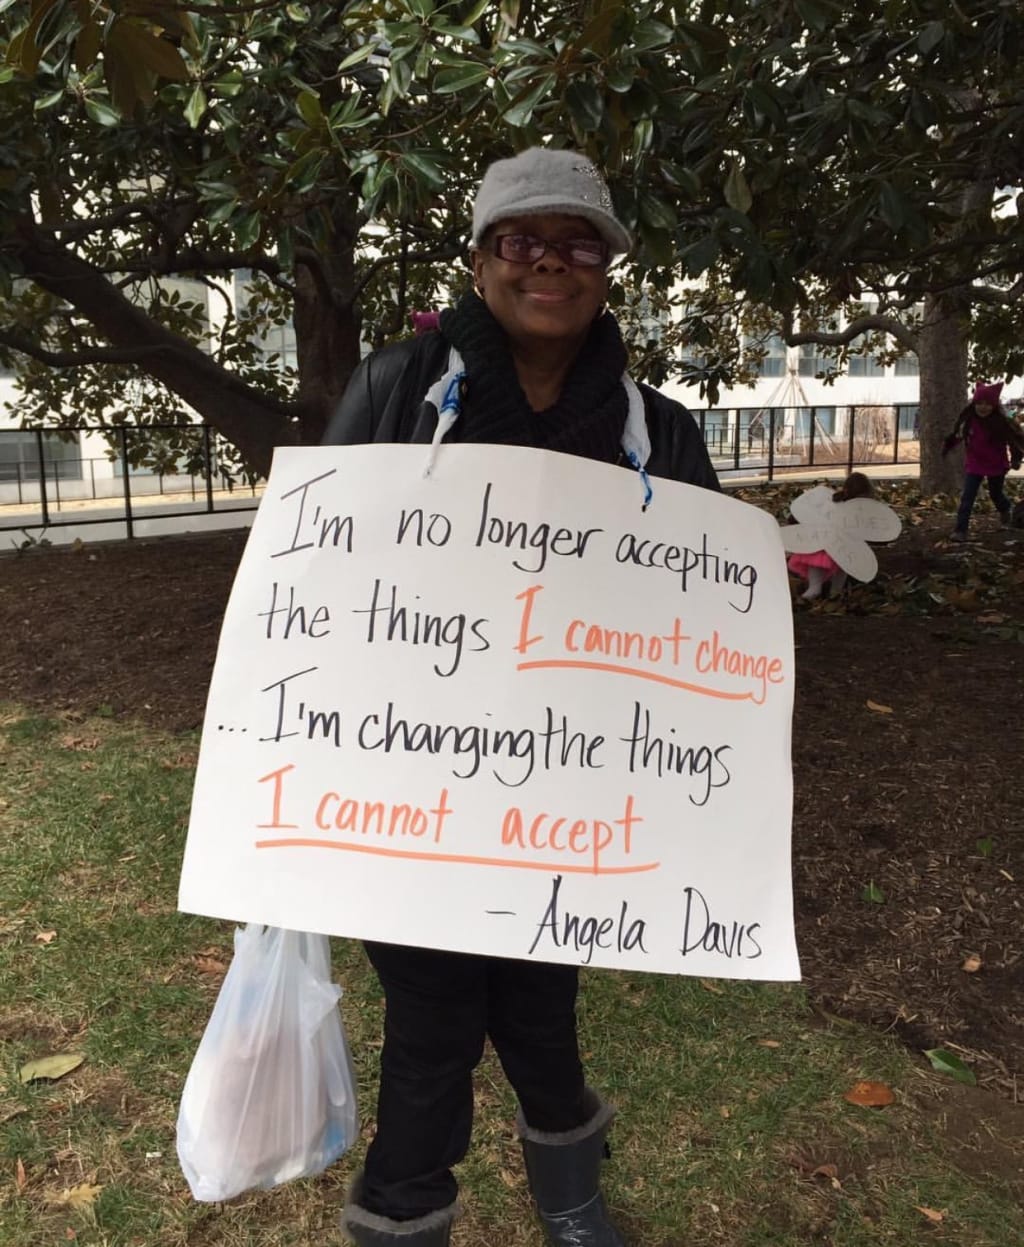 I'm no longer accepting
the things I cannot change
... I'm changing the things
I cannot accept
– Angela Davis
LIVES